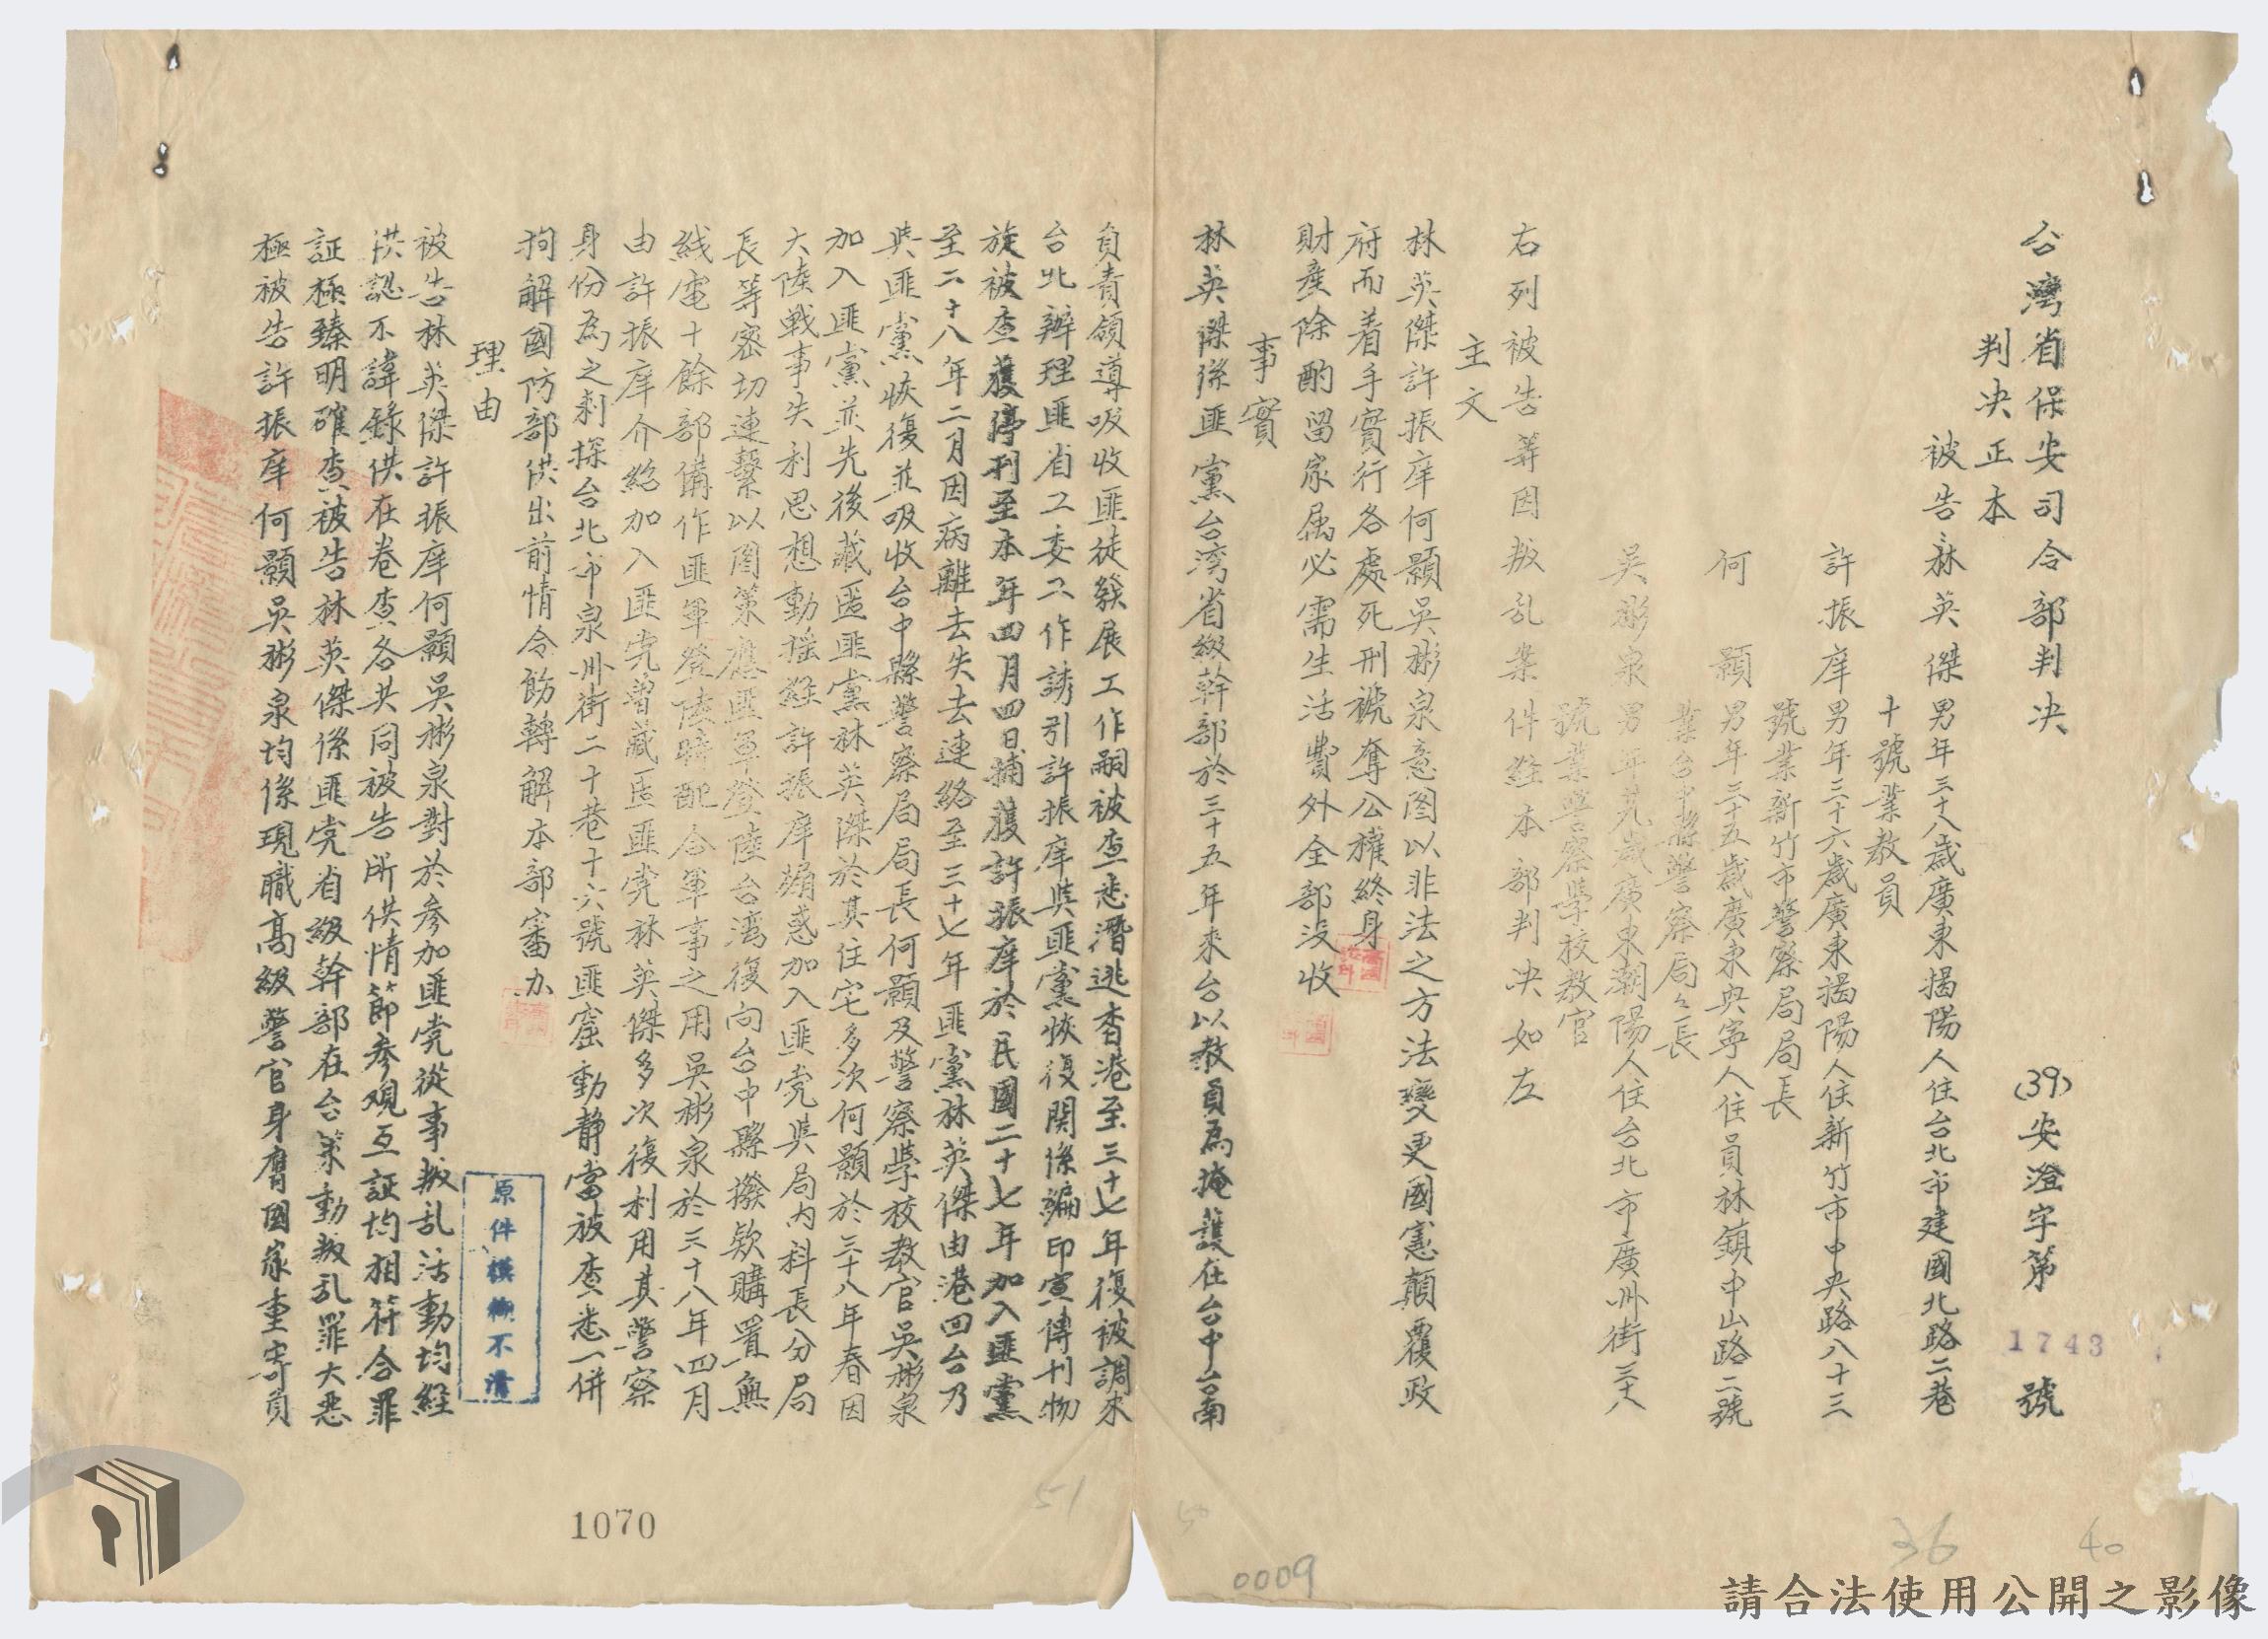 台灣省保安司令部判決
(39)安澄字第1743號
判決正本
被告林英傑男年三十八歲廣東揭陽人住台北市建國北路二巷
十號業教員
許振庠男年三十六歲廣東揭陽人住新竹市中央路八十三
號業新竹市警察局局長
何 顯男年三十五歲廣東興寧人住員林鎮中山路二號
業台中縣警察局々長
吳彬泉男年 歲廣東潮陽人住台北市廣州街三十八
號業警察學校教官
右列被告等因叛乱案件経本部判决如左
主文
林英傑許振庠何顯吳彬泉意图以非法之方法變更國憲顛覆政
府而着手實行各處死刑褫奪公權終身
財產除酌留家属必需生活費外全部沒收
事實
林英傑係匪黨台湾省級幹部於三十五年來台以教員為掩護在台中台南
負責領導吸收匪徒發展工作嗣被查悉潛逃香港至三十七年復被調來
台北辦理匪省工委工作誘引許振庠與匪黨恢復関係編印宣傳刊物
旋被查獲停刊至本年四月四日捕獲許振庠於民國二十七年加入匪黨
至二十八年二月因病離去失去連絡至三十七年匪黨林英傑由港回台乃
與匪黨恢復並吸收台中縣警察局局長何顯及警察學校教官吳彬泉
加入匪黨並先後藏匿匪黨林英傑於其住宅多次何顯於三十八年春因
大陸戰事失利思想動搖経許振庠煽惑加入匪党與局内科長分局
長等密切連繫以图策應匪軍登陸台湾復向台中縣撥欵購置無
綫電十餘部備作匪軍登陸時配合軍事之用吳彬泉於三十八年四月
由許振庠介紹加入匪党曾藏匿匪党林英傑多次復利用其警察
身份為之刺探台北市泉州街二十巷十六號匪窟動静當被查悉一併
拘解國防部供出前情令飭轉解本部審办
理由
被告林英傑許振庠何顯吳彬泉對於參加匪党從事叛乱活動均経
供認不諱錄供在卷查各共同被告所供情節參观互証均相符合罪
証極臻明確查被告林英傑係匪党省級幹部在台策動叛乱罪大惡
極被告許振庠何顯吳彬泉均係現職高級警官身膺國家重寄負
原件模糊不清
1070
51
50
0009
36
40
請合法使用公開之影像